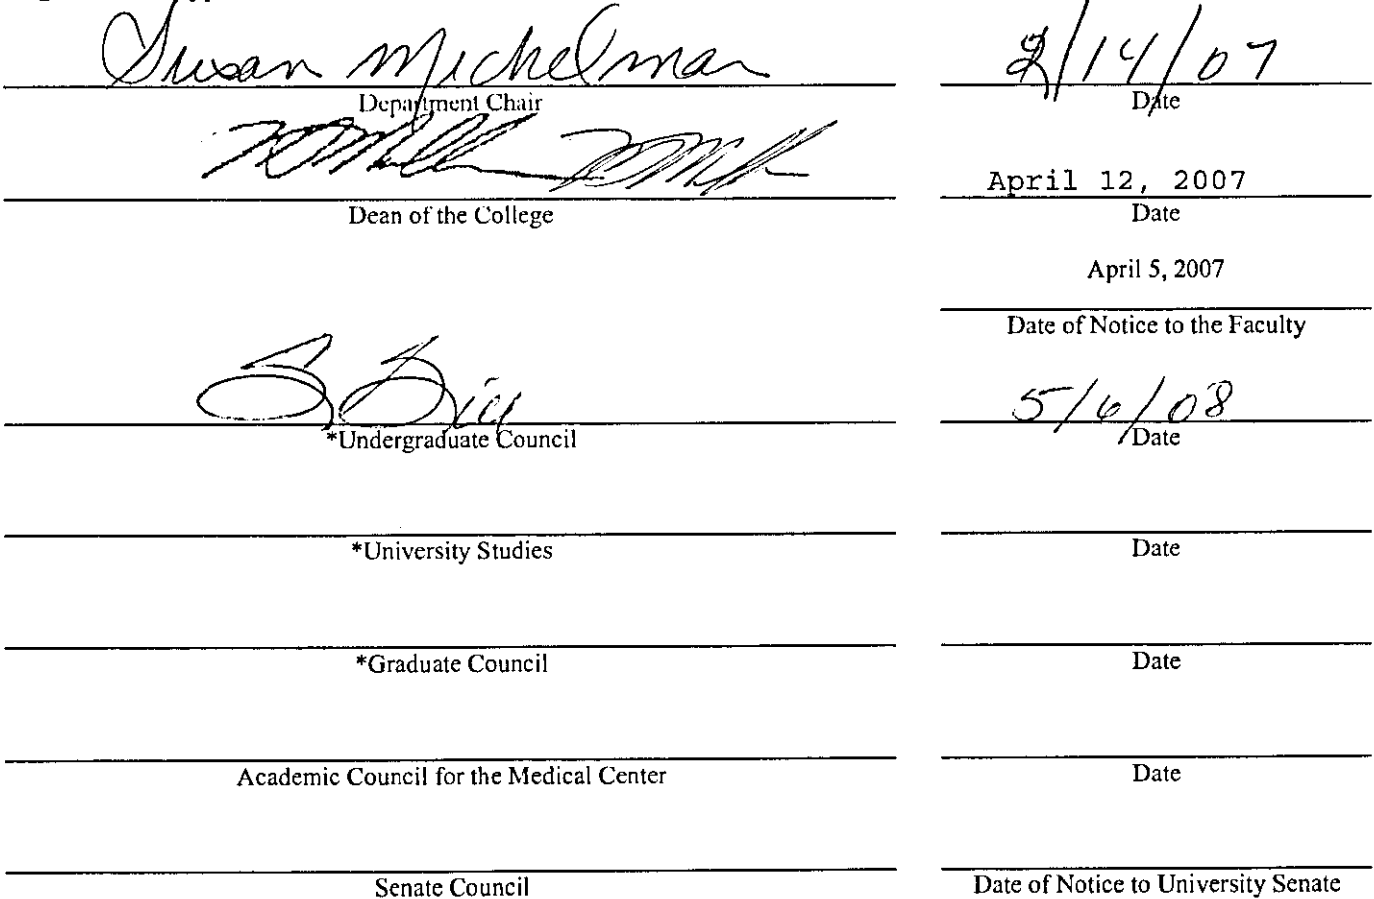 Susan Michelman 2/14/07
Department Chair Date
April 12, 2007
Dean of the College Date
April 5, 2007
Date of Notice to the Faculty
5/6/08
*Undergraduate Council Date
*University Studies Date
*Graduate Council Date
Academic Council for the Medical Center Date
Senate Council Date of Notice to University Senate